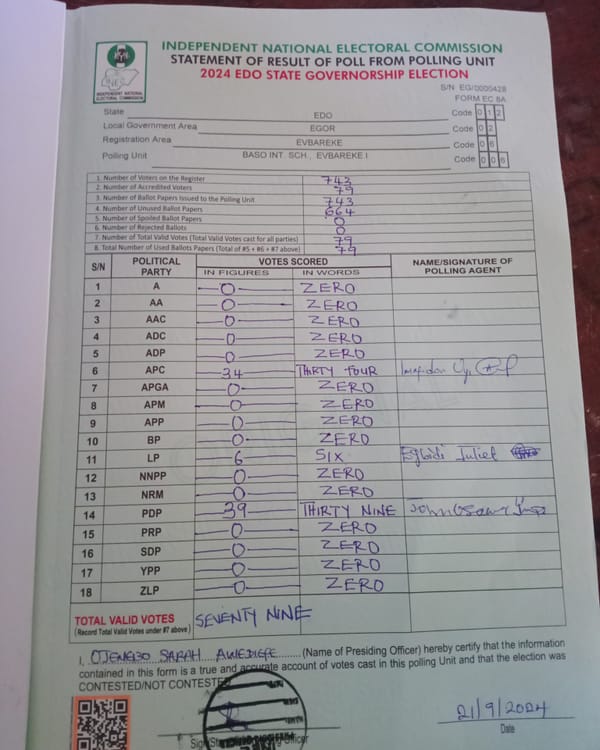 INDEPENDENT NATIONAL ELECTORAL COMMISSION
STATEMENT OF RESULT OF POLL FROM POLLING UNIT
2024 EDO STATE GOVERNORSHIP ELECTION
INDEPENDENT NATIONAL ELECTORAL COMMISSION
S/N EG/0000428
FORM EC 8A
State EDO Code 0 1 2
Local Government Area EGOR Code 0 2
Registration Area EVBAREKE Code 0 6
Polling Unit BASO INT. SCH., EVBAREKE I Code 0 0 6
1. Number of Voters on the Register 743
2. Number of Accredited Voters 79
3. Number of Ballot Papers Issued to the Polling Unit 743
4. Number of Unused Ballot Papers 664
5. Number of Spoiled Ballot Papers 0
6. Number of Rejected Ballots 0
7. Number of Total Valid Votes (Total Valid Votes cast for all parties) 79
8. Total Number of Used Ballots Papers (Total of #5 + #6 + #7 above) 79
S/N POLITICAL PARTY VOTES SCORED NAME/SIGNATURE OF POLLING AGENT
IN FIGURES IN WORDS
1 A 0 ZERO
2 AA 0 ZERO
3 AAC 0 ZERO
4 ADC 0 ZERO
5 ADP 0 ZERO
6 APC 34 THIRTY FOUR
7 APGA 0 ZERO
8 APM 0 ZERO
9 APP 0 ZERO
10 BP 0 ZERO
11 LP 6 SIX Juliet
12 NNPP 0 ZERO
13 NRM 0 ZERO
14 PDP 39 THIRTY NINE John
15 PRP 0 ZERO
16 SDP 0 ZERO
17 YPP 0 ZERO
18 ZLP 0 ZERO
TOTAL VALID VOTES SEVENTY NINE
(Record Total Valid Votes under #7 above)
I, OJENGBO SARAH AWEDIGE (Name of Presiding Officer) hereby certify that the information
contained in this form is a true and accurate account of votes cast in this polling Unit and that the election was
CONTESTED/NOT CONTESTED
21/9/2024
Date